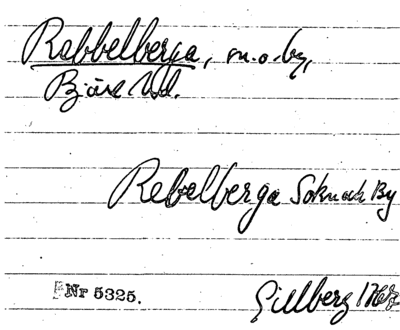 Rabbelberga, sn. o. by,
Bjäre hd.
Rebelberga Sokn och By
Nr 5325.
Gillberg